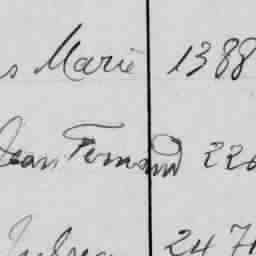 s Marie 1388
Jean Fernand 226
247